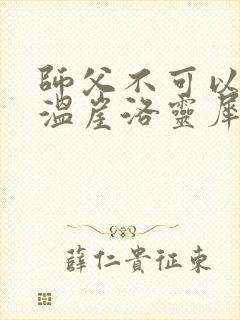 師父不可以
溫崖洛靈犀
薛仁貴征東